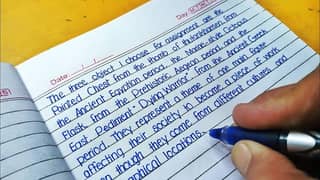 Day
Date
The three object I choose for assignment are the
Painted Chest from the thomb of thutankhamen from
the Ancient Egyptian period, the Marine-style Octopus
Flask from the Prehistoric Aegean period, and the
East Pediment "Dying Warrior" from the Ancient Greek
Period. They represent a story of one main figure
affecting their society to become a piece of work
even though they come from different cultures and
locations.